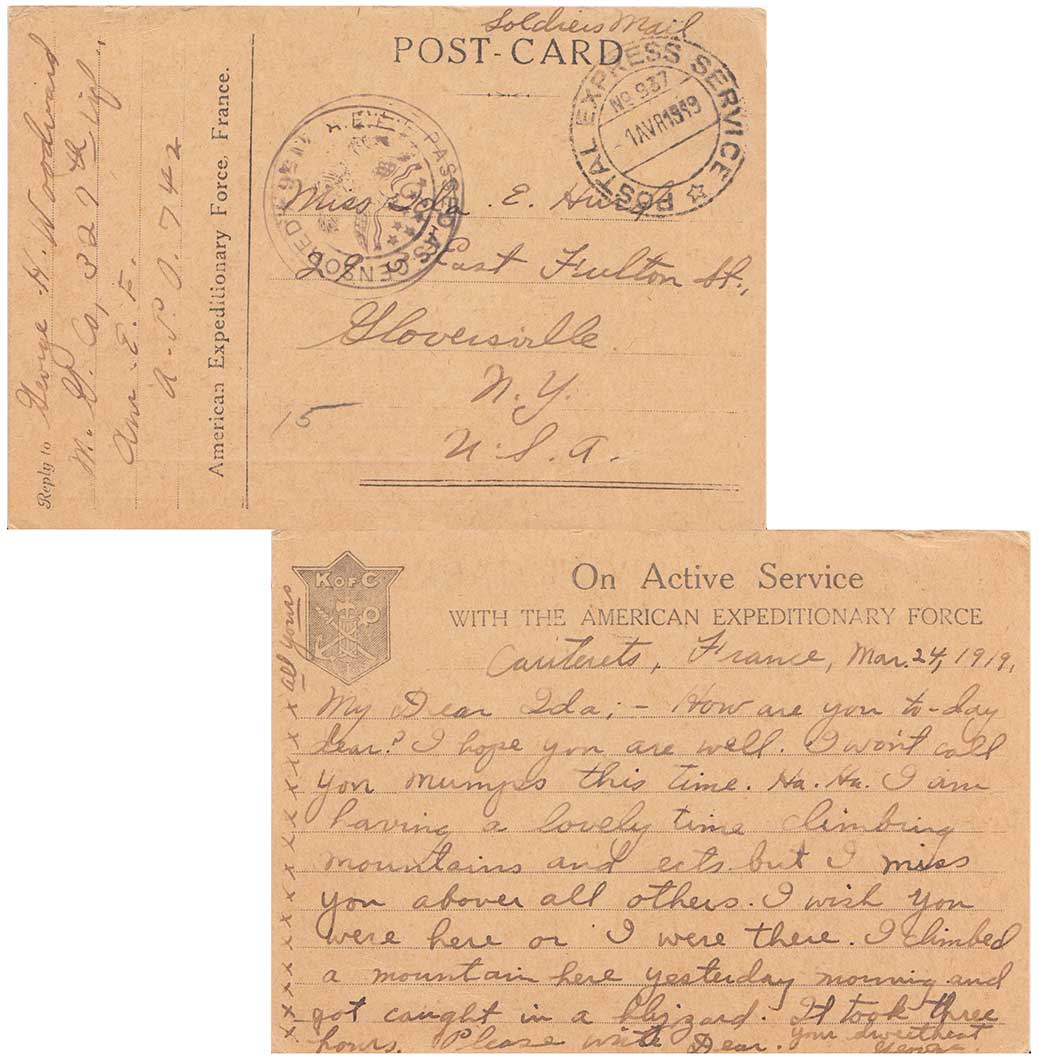 Soldiers Mail
POST-CARD
POSTAL EXPRESS SERVICE
No 937
1 AVR 1919
PASSED AS CENSORED
Miss Ida E.
East Fulton St.,
Gloversville
N.Y.
U.S.A.
15
Reply to George H. Woodward
M. G. Co, 329th inf
Am. E. F.
A.P.O. 742
American Expeditionary Force, France.
K OF C
On Active Service
WITH THE AMERICAN EXPEDITIONARY FORCE
Cauterets, France, Mar. 24, 1919.
My Dear Ida; - How are you to-day
dear? I hope you are well. I won't call
you mumps this time. Ha. Ha. I am
having a lovely time climbing
mountains and ects. but I miss
you abover all others. I wish you
were here or I were there. I climbed
a mountain here yesterday morning and
got caught in a blizzard. It took three
hours. Please write Dear. your sweetheart
George
x x x x x x x x x x x x x all yours